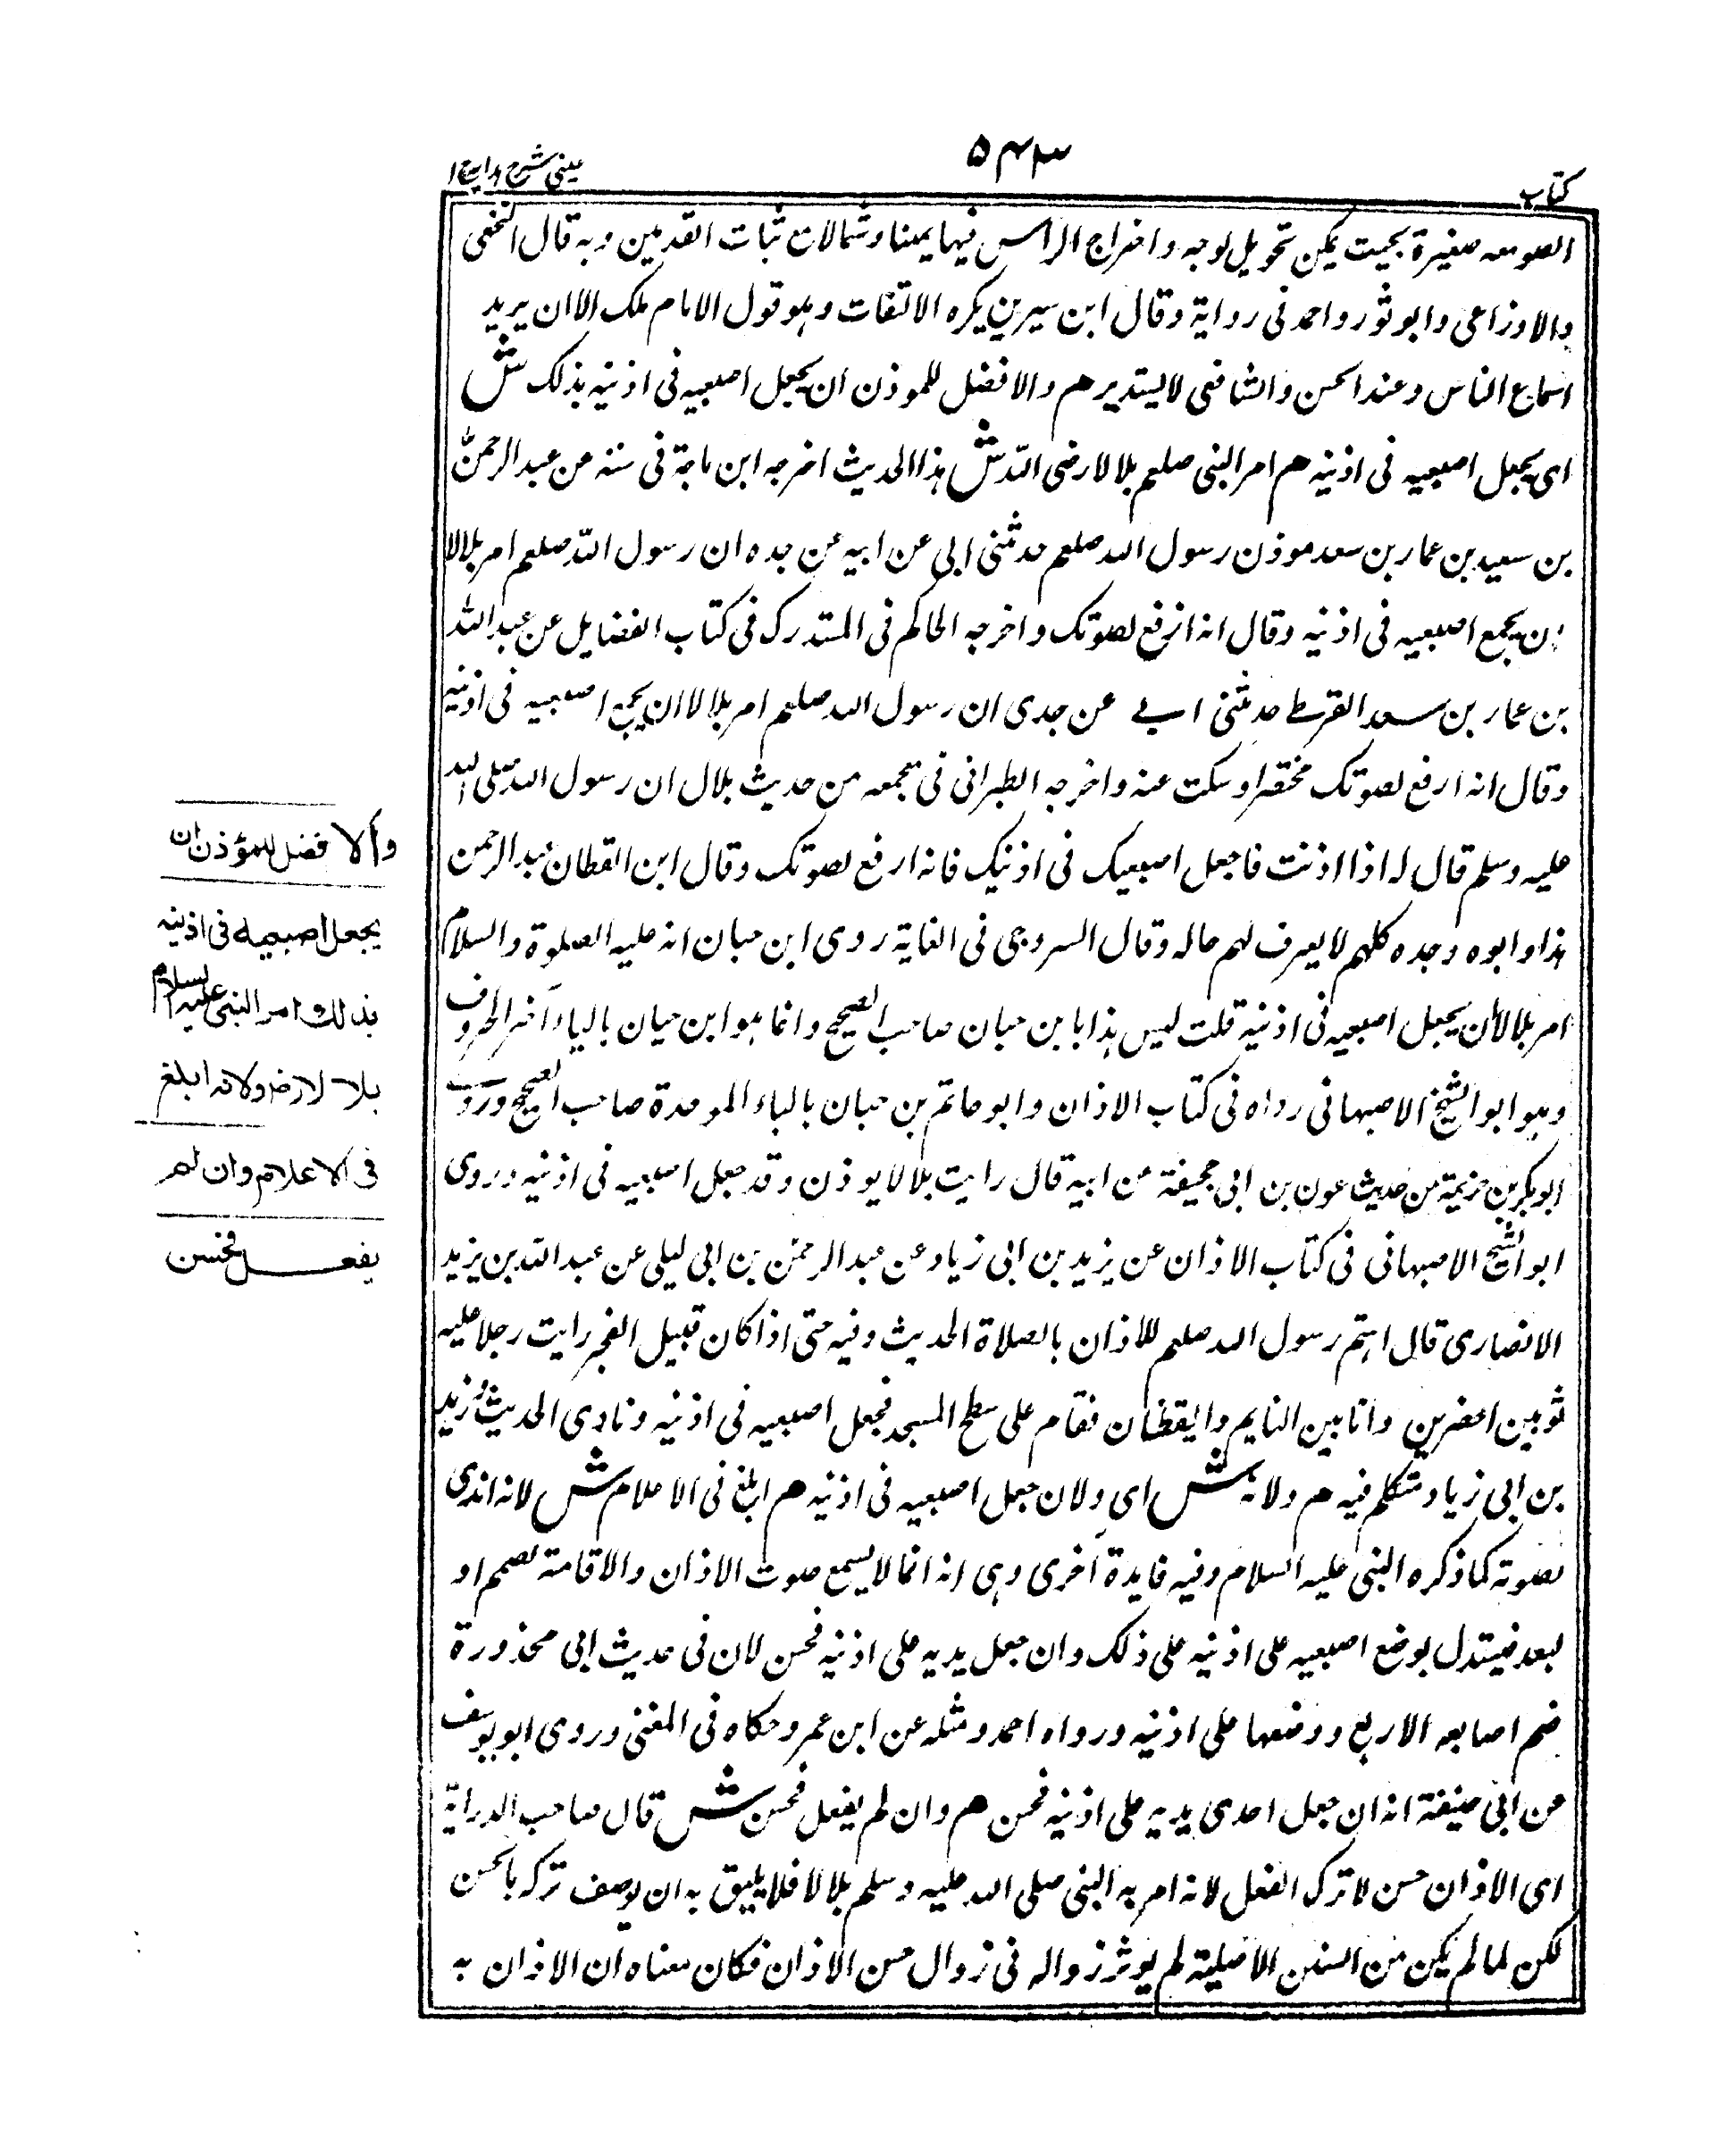 كتاب
٥٤٣
عينى شرح هدايه ج ١
الصومعه صغيرة بحيث يمكن تحويل لوجه واخراج الراس فيها يمينا وشمالا مع ثبات القدمين وبه قال النخعى
والاوزاعى وابو ثور واحمد فى رواية وقال ابن سيرين يكره الالتفات وهو قول الامام ملك الا ان يريد
اسماع الناس وعند الحسن والشافعى لا يستدير هم والافضل للموذن ان يجعل اصبعيه فى اذنيه بذلك ش
اى يجعل اصبعيه فى اذنيه هم امر النبى صلعم بلالا رضى الله ش هذا الحديث اخرجه ابن ماجة فى سننه من عبد الرحمن
بن سعيد بن عمار بن سعد موذن رسول الله صلعم حدثنى ابى عن ابيه عن جده ان رسول الله صلعم امر بلالا
ان يجمع اصبعيه فى اذنيه وقال انه ارفع لصوتك واخرجه الحاكم فى المستدرك فى كتاب الفضايل عن عبد الله
بن عمار بن سعد القرط حدثنى ابى عن جدى ان رسول الله صلعم امر بلالا ان يجمع اصبعيه فى اذنيه
وقال انه ارفع لصوتك مختصرا وسكت عنه واخرجه الطبرانى فى معجمه من حديث بلال ان رسول الله صلى الله
عليه وسلم قال له اذا اذنت فاجعل اصبعيك فى اذنيك فانه ارفع لصوتك وقال ابن القطان عبد الرحمن
هذا وابوه وجده كلهم لا يعرف لهم حاله وقال السروجى فى الغاية روى ابن حبان انه عليه الصلوة والسلام
امر بلالا ان يجعل اصبعيه فى اذنيه قلت ليس هذا بابن حبان صاحب الصحيح وانما هو ابن حيان بالياء آخر الحروف
وهو ابو الشيخ الاصبهانى رواه فى كتاب الاذان وابو حاتم بن حبان بالباء الموحدة صاحب الصحيح وروى
ابو بكر بن خزيمة من حديث عون بن ابى جحيفة عن ابيه قال رايت بلالا يوذن وقد جعل اصبعيه فى اذنيه وروى
ابو الشيخ الاصبهانى فى كتاب الاذان عن يزيد بن ابى زياد عن عبد الرحمن بن ابى ليلى عن عبد الله بن يزيد
الانصارى قال اهتم رسول الله صلعم للاذان بالصلاة الحديث وفيه حتى اذا كان قبيل الفجر رايت رجلا عليه
ثوبين اخضرين وانا بين النايم واليقظان فقام على سطح المسجد فجعل اصبعيه فى اذنيه ونادى الحديث ويزيد
بن ابى زياد متكلم فيه هم ولانه ش اى ولان جعل اصبعيه فى اذنيه هم ابلغ فى الاعلام ش لانه اندى
لصوته كما ذكره النبى عليه السلام وفيه فايدة آخرى وهى انه انما لا يسمع صوت الاذان والاقامة لصمم او
لبعد فيستدل بوضع اصبعيه على اذنيه على ذلك وان جعل يديه على اذنيه فحسن لان فى حديث ابى محذورة
ضم اصابعه الاربع ووضعها على اذنيه ورواه احمد ومثله عن ابن عمر وحكاه فى المغنى وروى ابو يوسف
عن ابى حنيفة انه ان جعل احدى يديه على اذنيه فحسن هم وان لم يفعل فحسن ش قال صاحب الدراية
اى الاذان حسن لا ترك الفعل لانه امر به النبى صلى الله عليه وسلم بلالا فلا يليق به ان يوصف تركه بالحسن
لكن لما لم يكن من السنن الاصلية لم يوثر زواله فى زوال حسن الاذان فكان معناه ان الاذان به
والافضل للمؤذن ان
يجعل اصبعيه فى اذنيه
بذلك امر النبى عليه السلام
بلالا رض ولانه ابلغ
فى الاعلام وان لم
يفعل فحسن